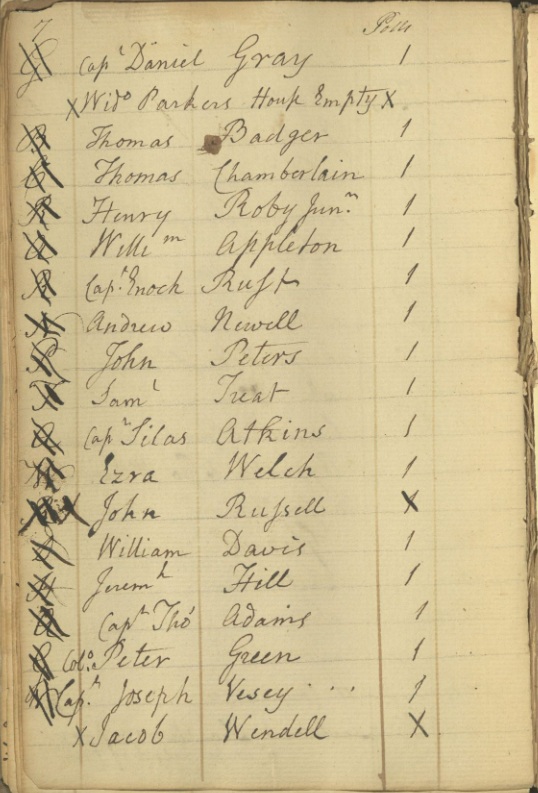 7 Polls
G Capt Daniel Gray 1
X Wido Parkers House Empty X
B Thomas Badger 1
C Thomas Chamberlain 1
R Henry Roby Junr 1
A Willim Appleton 1
R Capt Enoch Rust 1
N Andrew Newell 1
P John Peters 1
T Saml Treat 1
A Capt Silas Atkins 1
W Ezra Welch 1
X John Russell X
D William Davis 1
H Jeremh Hill 1
A Capt Tho Adams 1
G Colo. Peter Green 1
V Capt. Joseph Vesey 1
X Jacob Wendell X